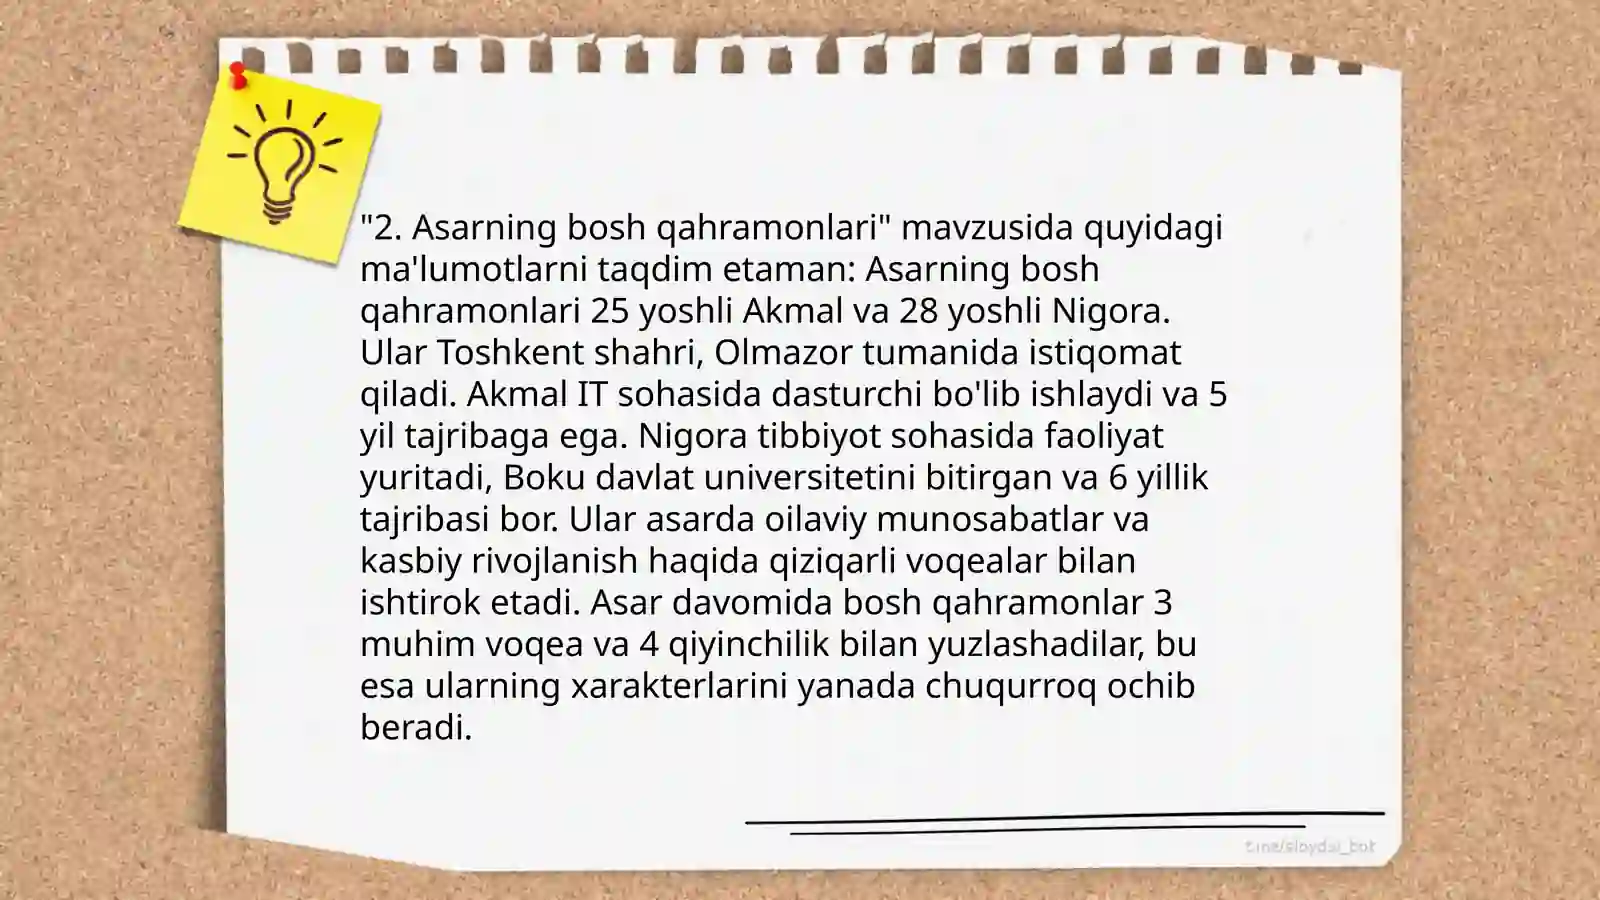 "2. Asarning bosh qahramonlari" mavzusida quyidagi
ma'lumotlarni taqdim etaman: Asarning bosh
qahramonlari 25 yoshli Akmal va 28 yoshli Nigora.
Ular Toshkent shahri, Olmazor tumanida istiqomat
qiladi. Akmal IT sohasida dasturchi bo'lib ishlaydi va 5
yil tajribaga ega. Nigora tibbiyot sohasida faoliyat
yuritadi, Boku davlat universitetini bitirgan va 6 yillik
tajribasi bor. Ular asarda oilaviy munosabatlar va
kasbiy rivojlanish haqida qiziqarli voqealar bilan
ishtirok etadi. Asar davomida bosh qahramonlar 3
muhim voqea va 4 qiyinchilik bilan yuzlashadilar, bu
esa ularning xarakterlarini yanada chuqurroq ochib
beradi.